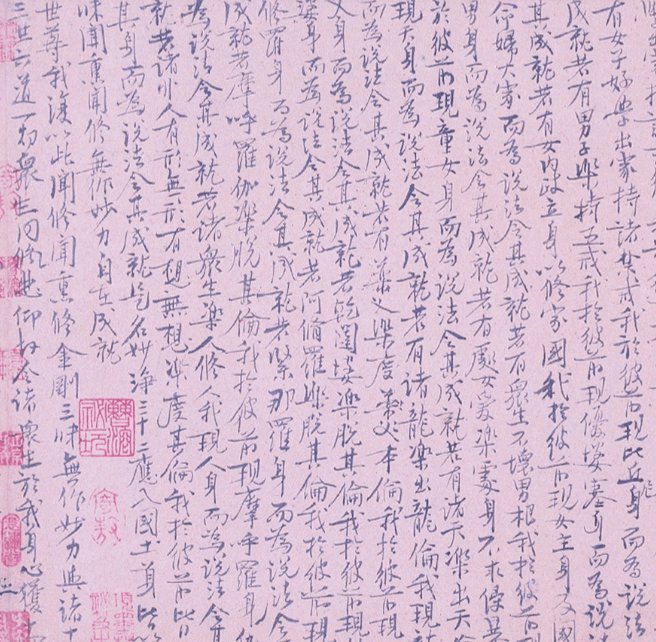 有女子好學出家持諸禁戒我於彼前現比丘身而為說法
成就若有男子樂持五戒我於彼前現優婆塞身而為說
其成就若有女內政立身以修家國我於彼前現女主身及國
命婦大家而為說法令其成就若有眾生不壞男根我於彼前
男身而為說法令其成就若有處女愛樂處身不求侵暴
於彼前現童女身而為說法令其成就若有諸天樂出天倫
現天身而為說法令其成就若有諸龍樂出龍倫我現
而為說法令其成就若有藥叉樂度藥叉本倫我於彼前現
叉身而為說法令其成就若乾闥婆樂脫其倫我於彼前現
婆身而為說法令其成就若阿脩羅樂脫其倫我於彼前現
修羅身而為說法令其成就若緊那羅身而為說法令
成就若摩呼羅伽樂脫其倫我於彼前現摩呼羅身
為說法令其成就若諸眾生樂人修人我現人身而為說法令其
就若諸非人有形無形有想無想樂度其倫我於彼前皆
其身而為說法令其成就是名妙淨三十二應入國土身皆
味聞熏聞修無作妙力自在成就
世尊我復以此聞修聞熏修金剛三昧無作妙力與諸十
三世六道一切眾生同悲仰故令諸眾生於我身心獲